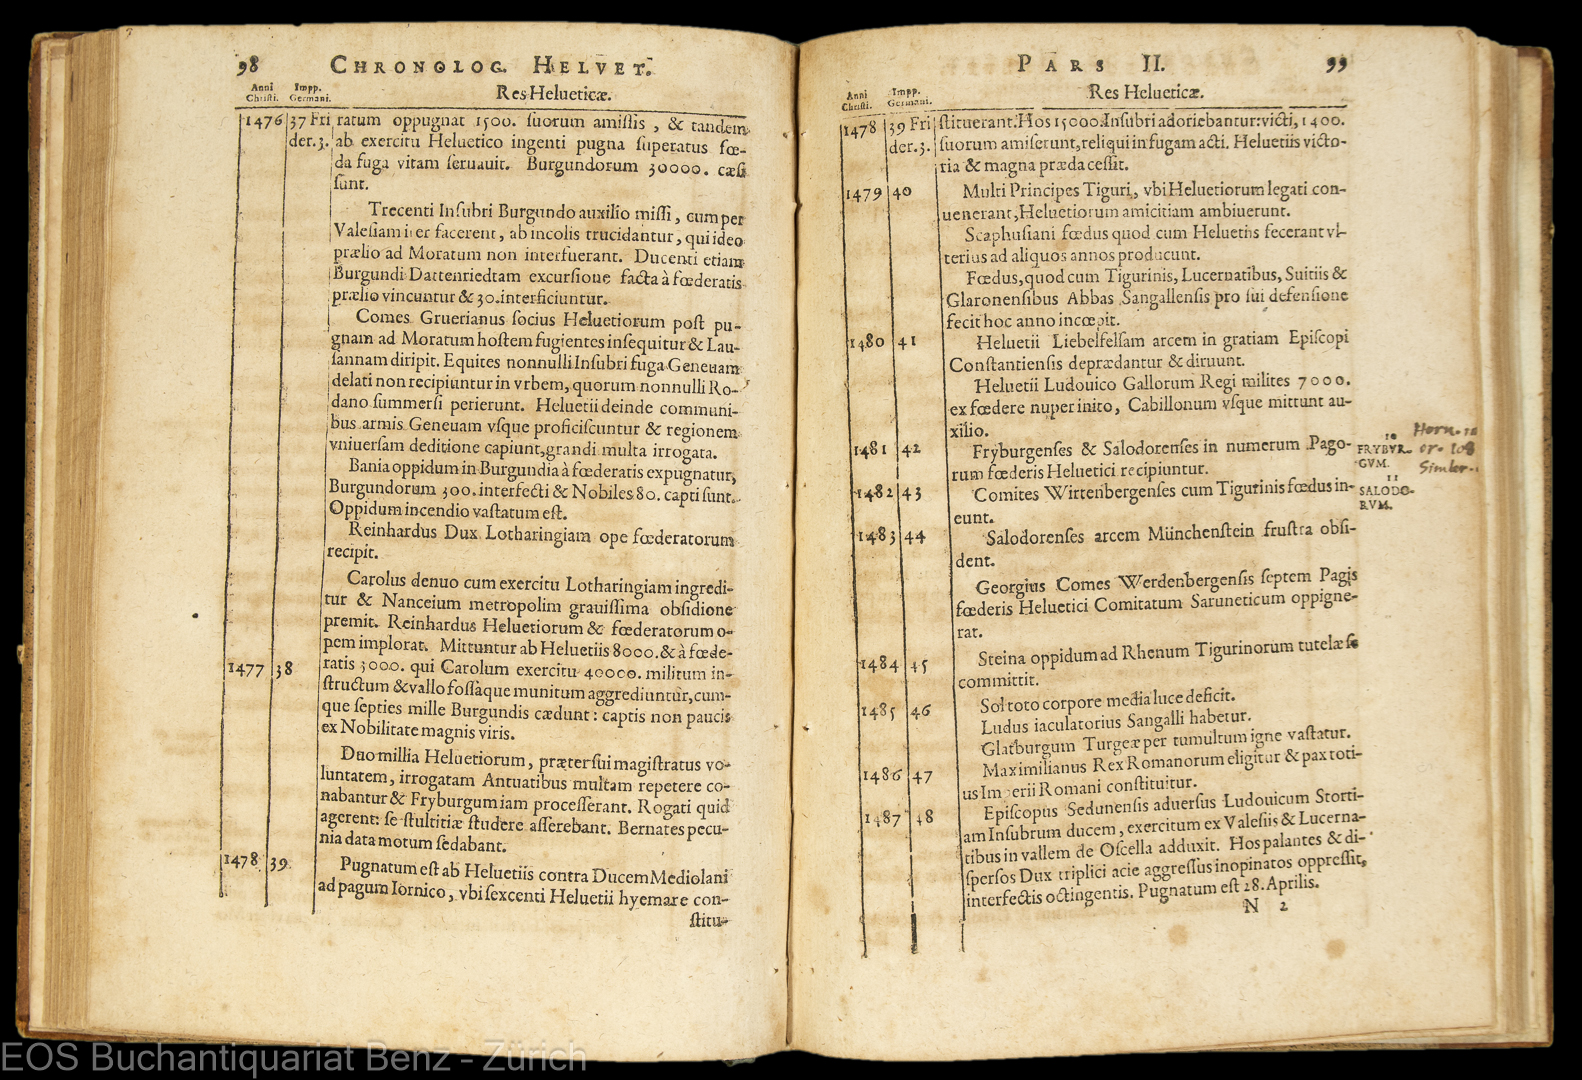 98 CHRONOLOG. HELVET.
Anni Christi. Impp. Germani. Res Helueticæ.
1476 37 Fri ratum oppugnat 1500. ſuorum amiſſis, & tandem
der. 3. ab exercitu Heluetico ingenti pugna ſuperatus fœ-
da fuga vitam ſeruauit. Burgundorum 30000. cæſi
ſunt.
Trecenti Inſubri Burgundo auxilio miſſi, cum per
Valeſiam iter facerent, ab incolis trucidantur, qui ideo
prælio ad Moratum non interfuerant. Ducenti etiam
Burgundi Dattenriedtam excurſione facta à fœderatis
prælio vincuntur & 30. interficiuntur.
Comes Gruerianus ſocius Heluetiorum poſt pu-
gnam ad Moratum hoſtem fugientes inſequitur & Lau-
ſannam diripit. Equites nonnulli Inſubri fuga Geneuam
delati non recipiuntur in vrbem, quorum nonnulli Ro-
dano ſummerſi perierunt. Heluetii deinde communi-
bus armis Geneuam vſque proficiſcuntur & regionem
vniuerſam deditione capiunt, grandi multa irrogata.
Bania oppidum in Burgundia à fœderatis expugnatur,
Burgundorum 300. interfecti & Nobiles 80. capti ſunt.
Oppidum incendio vaſtatum eſt.
Reinhardus Dux Lotharingiam ope fœderatorum
recipit.
Carolus denuo cum exercitu Lotharingiam ingredi-
tur & Nanceium metropolim grauiſſima obſidione
premit. Reinhardus Heluetiorum & fœderatorum o-
pem implorat. Mittuntur ab Heluetiis 8000. & à fœde-
1477 38 ratis 3000. qui Carolum exercitu 40000. militum in-
ſtructum & vallo foſſaque munitum aggrediuntur, cum-
que ſepties mille Burgundis cædunt: captis non paucis
ex Nobilitate magnis viris.
Duo millia Heluetiorum, præter ſui magiſtratus vo-
luntatem, irrogatam Antuatibus multam repetere co-
nabantur & Fryburgum iam proceſſerant. Rogati quid
agerent: ſe ſtultitiæ ſtudere aſſerebant. Bernates pecu-
nia data motum ſedabant.
1478 39 Pugnatum eſt ab Heluetiis contra Ducem Mediolani
ad pagum Iornico, vbi ſexcenti Heluetii hyemare con-
ſtitu-
PARS II. 99
Anni Christi. Impp. Germani. Res Helueticæ.
1478 39 Fri ſtituerant. Hos 15000. Inſubri adoriebantur: victi, 1400.
der. 3. ſuorum amiſerunt, reliqui in fugam acti. Heluetiis victo-
ria & magna præda ceſſit.
1479 40 Multi Principes Tiguri, vbi Heluetiorum legati con-
uenerant, Heluetiorum amicitiam ambiuerunt.
Scaphuſiani fœdus quod cum Heluetiis fecerant vl-
terius ad aliquos annos producunt.
Fœdus, quod cum Tigurinis, Lucernatibus, Suitiis &
Glaronenſibus Abbas Sangallenſis pro ſui defenſione
fecit hoc anno incœpit.
1480 41 Heluetii Liebelfelſam arcem in gratiam Epiſcopi
Conſtantienſis deprædantur & diruunt.
Heluetii Ludouico Gallorum Regi milites 7000.
ex fœdere nuper inito, Cabillonum vſque mittunt au-
xilio.
1481 42 Fryburgenſes & Salodorenſes in numerum Pago-
rum fœderis Heluetici recipiuntur.
10
FRYBVR-
GVM.
Horn. 10
or. 108
Simler.
11
SALODO-
RVM.
1482 43 Comites Wirtenbergenſes cum Tigurinis fœdus in-
eunt.
1483 44 Salodorenſes arcem Münchenſtein fruſtra obſi-
dent.
Georgius Comes Werdenbergenſis ſeptem Pagis
fœderis Heluetici Comitatum Saruneticum oppigne-
rat.
1484 45 Steina oppidum ad Rhenum Tigurinorum tutelæ ſe
committit.
1485 46 Sol toto corpore media luce deficit.
Ludus iaculatorius Sangalli habetur.
Glatburgum Turgeæ per tumultum igne vaſtatur.
1486 47 Maximilianus Rex Romanorum eligitur & pax toti-
us Imperii Romani conſtituitur.
1487 48 Epiſcopus Sedunenſis aduerſus Ludouicum Storti-
am Inſubrum ducem, exercitum ex Valeſiis & Lucerna-
tibus in vallem de Oſcella adduxit. Hos palantes & di-
ſperſos Dux triplici acie aggreſſus inopinatos oppreſſit,
interfectis octingentis. Pugnatum eſt 28. Aprilis.
N 2
EOS Buchantiquariat Benz - Zürich